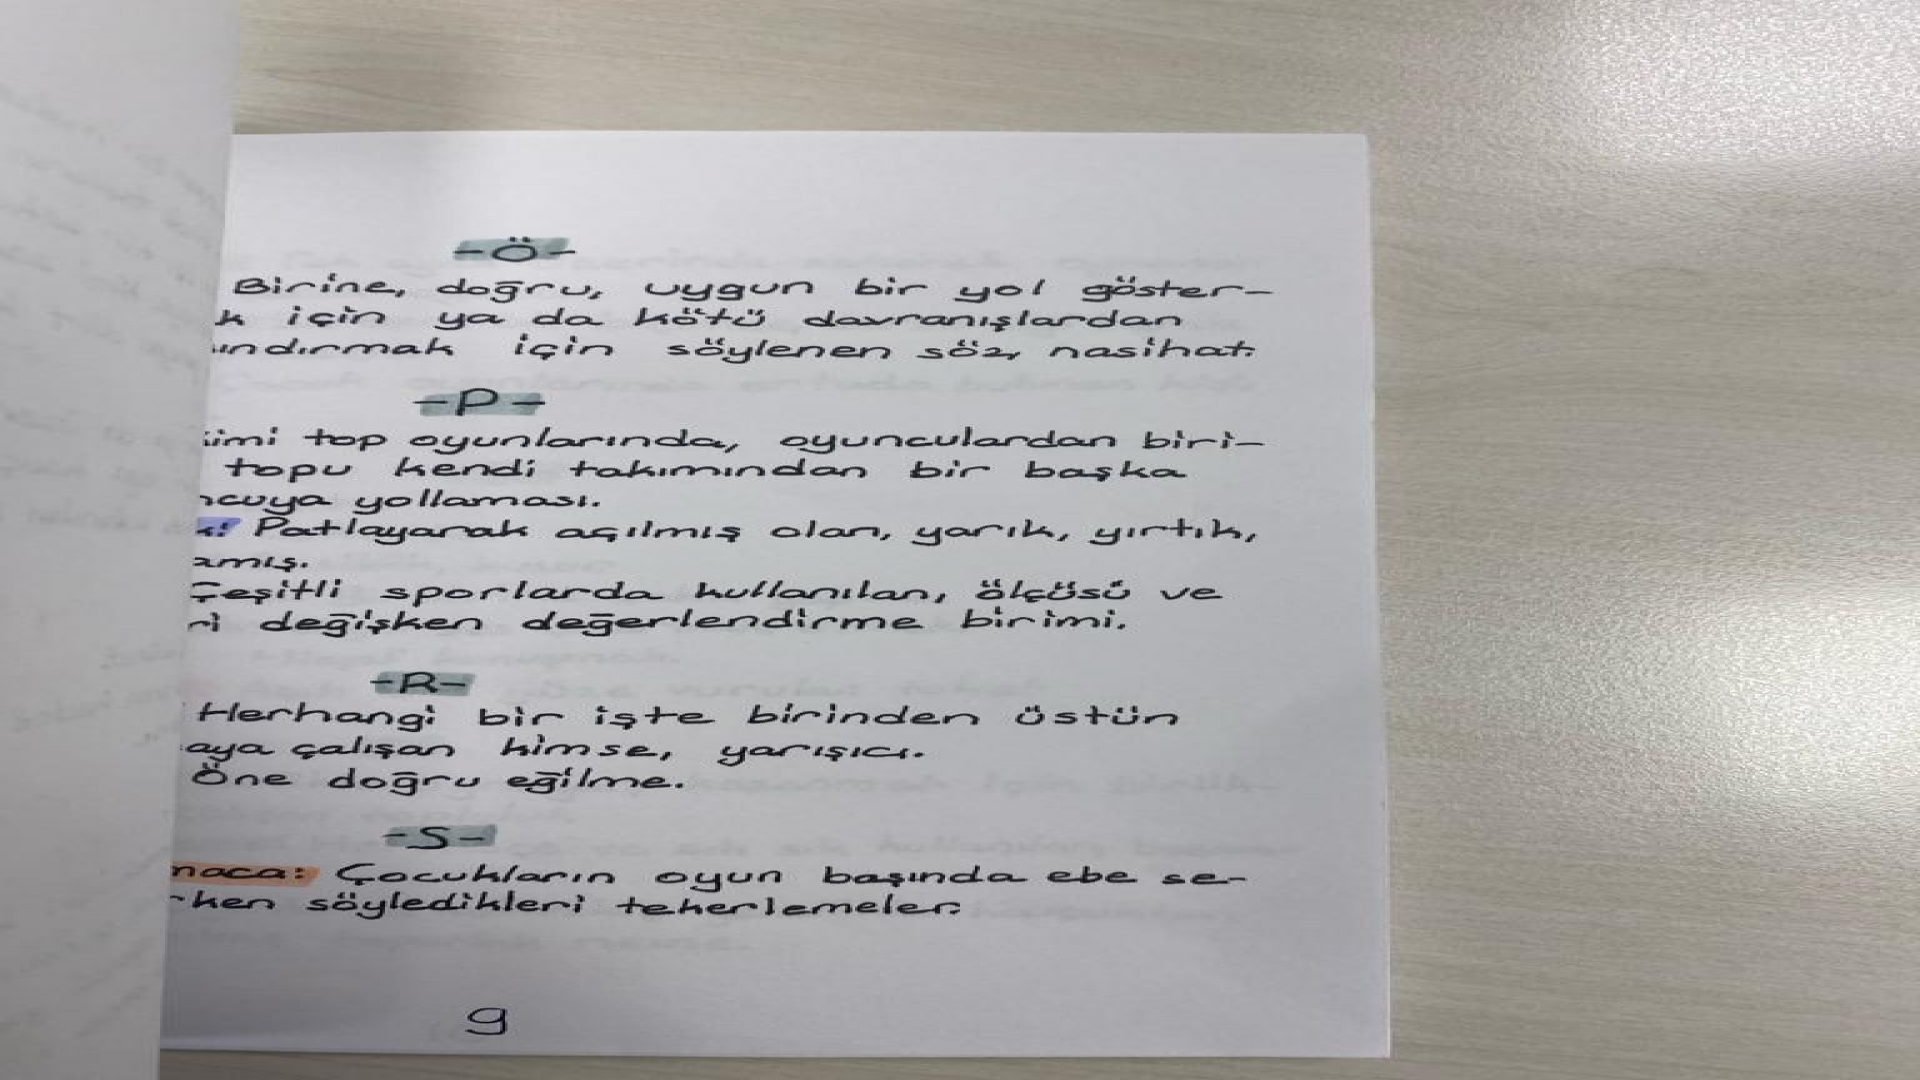 -Ö-
Birine, doğru, uygun bir yol göster-
k için ya da kötü davranışlardan
ındırmak için söylenen söz, nasihat.
-P-
imi top oyunlarında, oyunculardan biri-
topu kendi takımından bir başka
ncuya yollaması.
k: Patlayarak açılmış olan, yarık, yırtık,
amış.
Çeşitli sporlarda kullanılan, ölçüsü ve
ri değişken değerlendirme birimi.
-R-
Herhangi bir işte birinden üstün
aya çalışan kimse, yarışıcı.
Öne doğru eğilme.
-S-
maca: Çocukların oyun başında ebe se-
rken söyledikleri tekerlemeler.
9